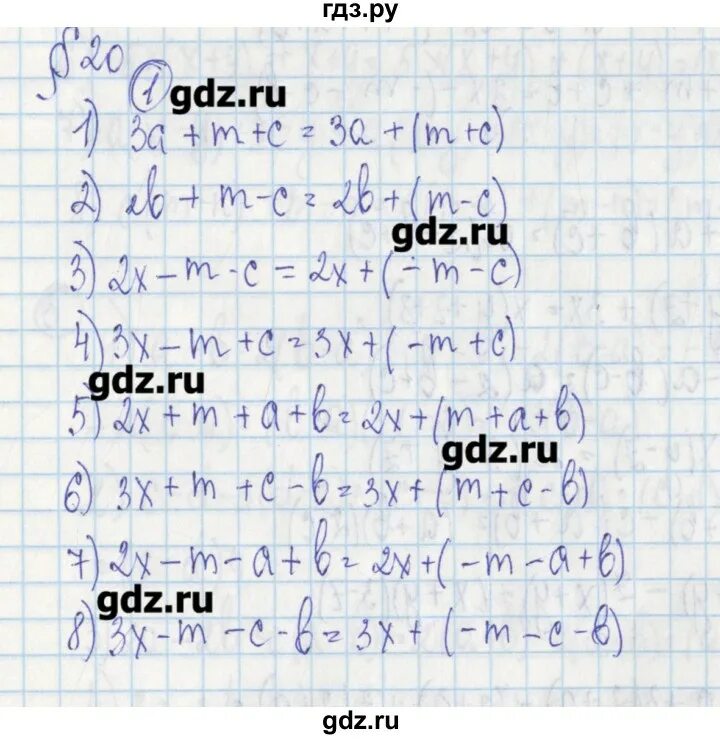 гдз.ру
§ 20
1 gdz.ru
1) 3a + m + c = 3a + (m + c)
2) 2b + m - c = 2b + (m - c)
gdz.ru
3) 2x - m - c = 2x + (- m - c)
4) 3x - m + c = 3x + (- m + c)
gdz.ru
5) 2x + m + a + b = 2x + (m + a + b)
gdz.ru
6) 3x + m + c - b = 3x + (m + c - b)
7) 2x - m - a + b = 2x + (- m - a + b)
gdz.ru
8) 3x - m - c - b = 3x + (- m - c - b)
gdz.ru